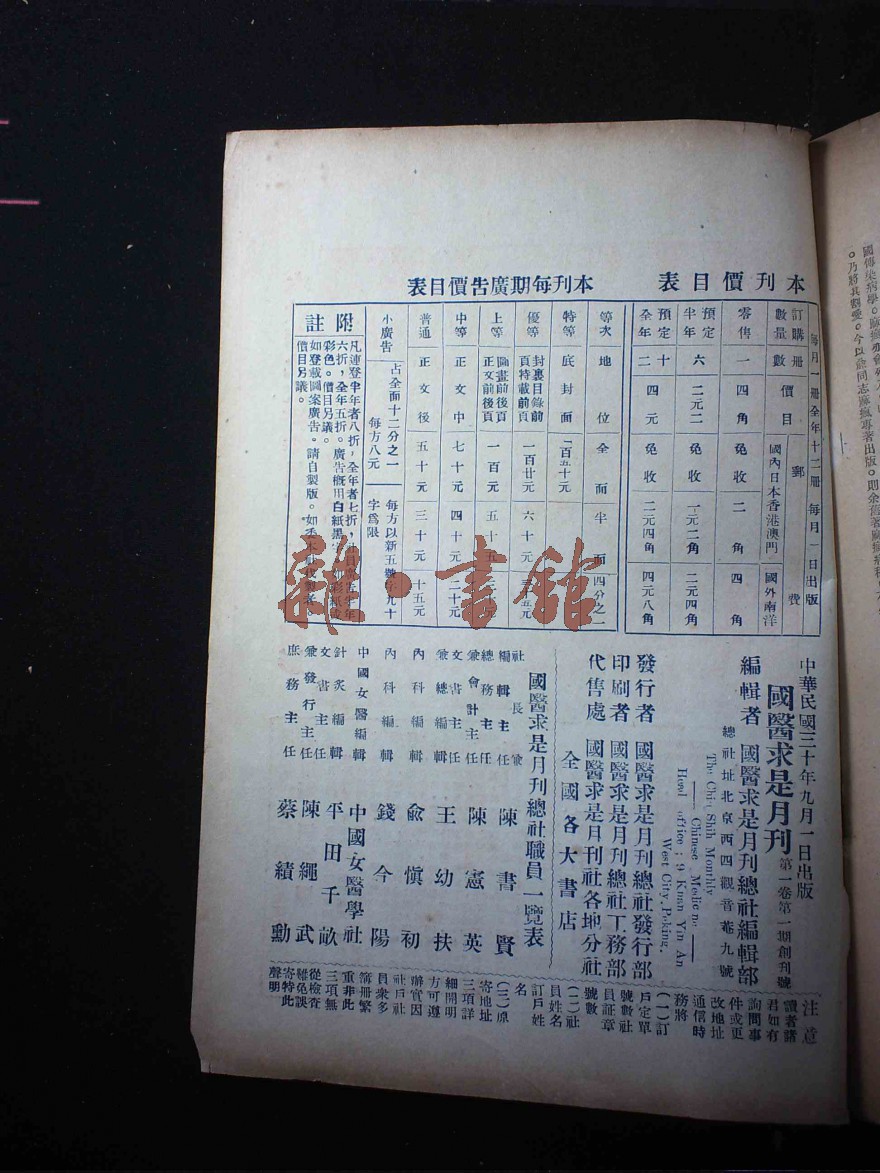 本刊價目表
每月一冊全年十二冊 每月一日出版
訂購數量 冊數 價目 郵費 國內日本香港澳門 國外南洋
零售 一 四角 免收 二角 四角
預定半年 六 二元二 免收 一元二角 二元四角
預定全年 十二 四元 免收 二元四角 四元八角
本刊每期廣告價目表
等次 地位 全面 半面 四分之一
特等 底封面 一百五十元
優等 封裏目錄前頁特載前頁 一百廿元 六十元
上等 圖畫前後頁正文前後頁 一百元 五十
中等 正文中 七十元 四十元 二十元
普通 正文後 五十元 三十元 十五元
小廣告 占全面十二分之一 每方八元 每方以新五號 九十字爲限
附註
凡連登半年者八折,全年者七折,
六折,全年五折。廣告槪用白紙黑
彩色。價目另議。
如登載圖案廣告。請自製版。如
價目另議。
中華民國三十年九月一日出版
國醫求是月刊 第一卷第一期創刊號
編輯者 國醫求是月刊總社編輯部
總社址北京西四觀音菴九號
The Chiu Shih Monthly
—— Chinese Medicine ——
Head office : 9 Kuan Yin An
West City, Peking.
發行者 國醫求是月刊總社發行部
印刷者 國醫求是月刊總社工務部
代售處 國醫求是月刊社各地分社
全國各大書店
國醫求是月刊總社職員一覽表
社長兼編輯主任 陳書賢
總務主任兼會計主任 陳憲英
文書主任兼總編輯 王幼扶
內科編輯 兪愼初
內科編輯 錢今陽
中國女醫編輯 中國女醫學社
針灸編輯 平田千畝
文書主任兼發行主任 陳繩武
庶務主任 蔡績勳
注意
讀者諸
君如有
詢問事
件或更
改地址
通信時
務將
(一)訂
戶定單
號數社
員証章
號數
(二)社
員姓名
訂戶姓
名
(三)原
寄地址
三項詳
細開明
方可遵
辦實因
社戶社
員衆多
簿冊繁
重非此
三項無
從檢查
難免誤
寄特此
聲明
雜·書館